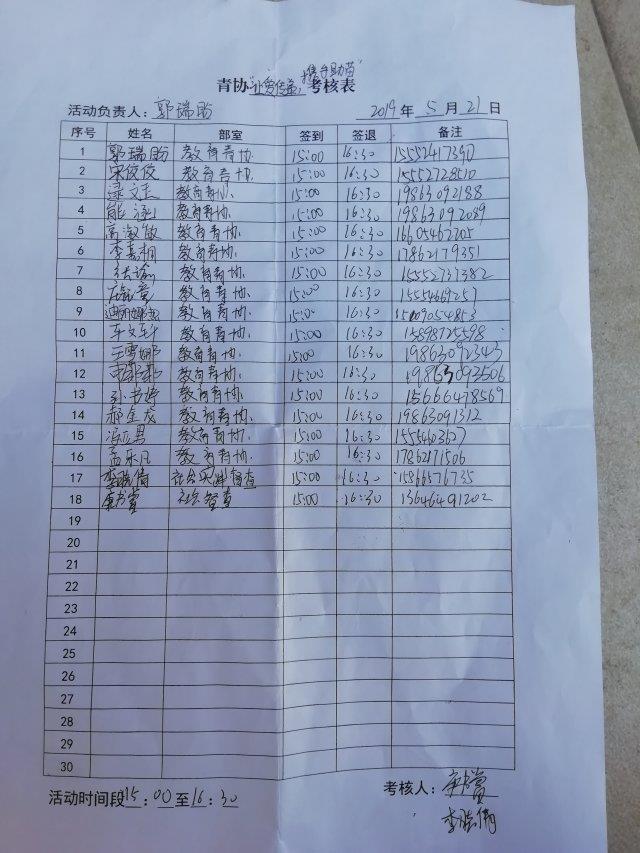 携手助苗"
青协"让爱传递,考核表
活动负责人：郭瑞盼 2019 年 5 月 21 日
序号 姓名 部室 签到 签退 备注
1 郭瑞盼 教育青协. 15:00 16:30 15552417390
2 宋佼佼 教育青协. 15:00 16:30 15552728510
3 教育青协. 15:00 16:30 19863092188
4 熊 教育青协. 15:00 16:30 19863092089
5 教育青协. 15:00 16:30 16605467205
6 李嘉桐 教育青协. 15:00 16:30 17862179351
7 教育青协. 15:00 16:30 15552737382
8 教育青协. 15:00 16:30 15554669257
9 教育青协. 15:00 16:30
10 车文轩 教育青协. 15:00 16:30 15898725598
11 王雪娜 教育青协. 15:00 16:30 19863092343
12 教育青协. 15:00 16:30 19863092506
13 教育青协. 15:00 16:30 15666478569
14 郝金龙 教育青协. 15:00 16:30 19863091312
15 教育青协. 15:00 16:30 1555463627
16 孟乐凡 教育青协. 15:00 16:30 17862171506
17 李晓倩 社会实践督查 15:00 16:30 15866576735
18 社会督查 15:00 16:30 13646491202
19
20
21
22
23
24
25
26
27
28
29
30
活动时间段15：00至16：30 考核人：
李晓倩